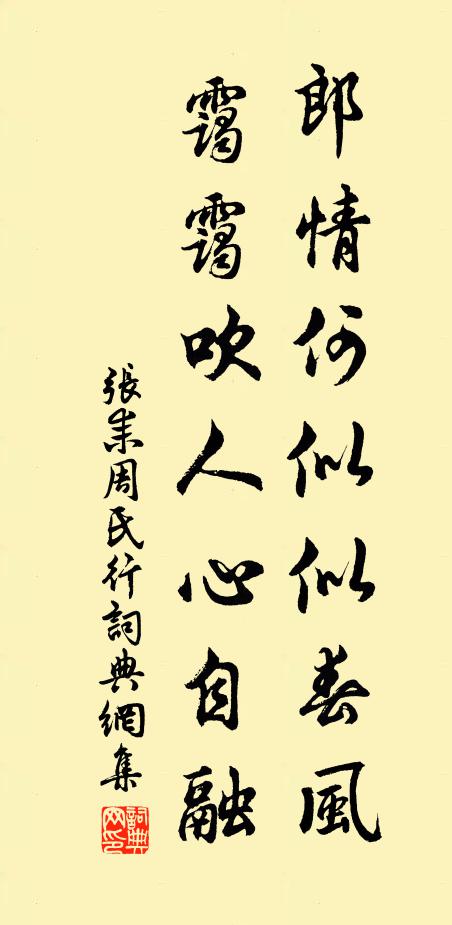 郎情何似似春風
靄靄吹人心自融
張耒周氏行詞典網集
詞典網印